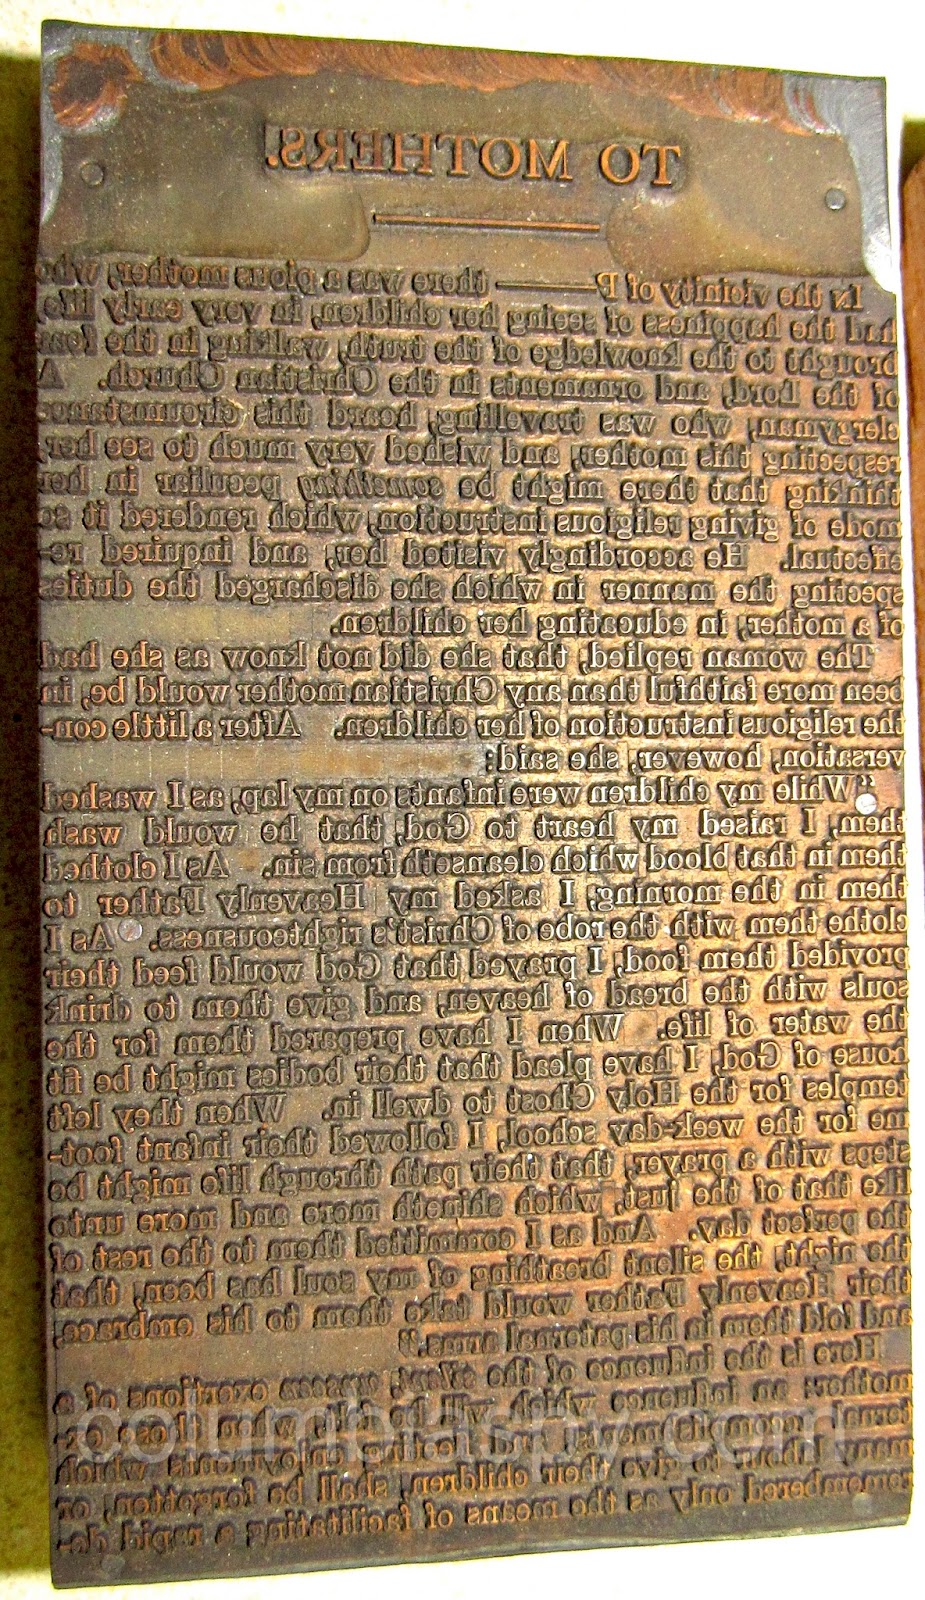 TO MOTHERS.
In the vicinity of P—— there was a pious mother, who
had the happiness of seeing her children, in very early life,
brought to the knowledge of the truth, walking in the fear
of the Lord, and ornaments in the Christian Church. A
clergyman, who was travelling, heard this circumstance
respecting this mother, and wished very much to see her,
thinking that there might be something peculiar in her
mode of giving religious instruction, which rendered it so
effectual. He accordingly visited her, and inquired re-
specting the manner in which she discharged the duties
of a mother, in educating her children.
The woman replied, that she did not know as she had
been more faithful than any Christian mother would be, in
the religious instruction of her children. After a little con-
versation, however, she said:
“While my children were infants on my lap, as I washed
them, I raised my heart to God, that he would wash
them in that blood which cleanseth from sin. As I clothed
them in the morning, I asked my Heavenly Father to
clothe them with the robe of Christ's righteousness. As I
provided them food, I prayed that God would feed their
souls with the bread of heaven, and give them to drink
the water of life. When I have prepared them for the
house of God, I have plead that their bodies might be fit
temples for the Holy Ghost to dwell in. When they left
me for the week-day school, I followed their infant foot-
steps with a prayer, that their path through life might be
like that of the just, which shineth more and more unto
the perfect day. And as I committed them to the rest of
the night, the silent breathing of my soul has been, that
their Heavenly Father would take them to his embrace,
and fold them in his paternal arms.”
Here is the influence of the silent, unseen exertions of a
mother: an influence which will be felt, when those ex-
ternal accomplishments, and fleeting enjoyments which
many labour to give their children, shall be forgotten, or
remembered only as the means of facilitating a rapid de-
columbiaspy.com